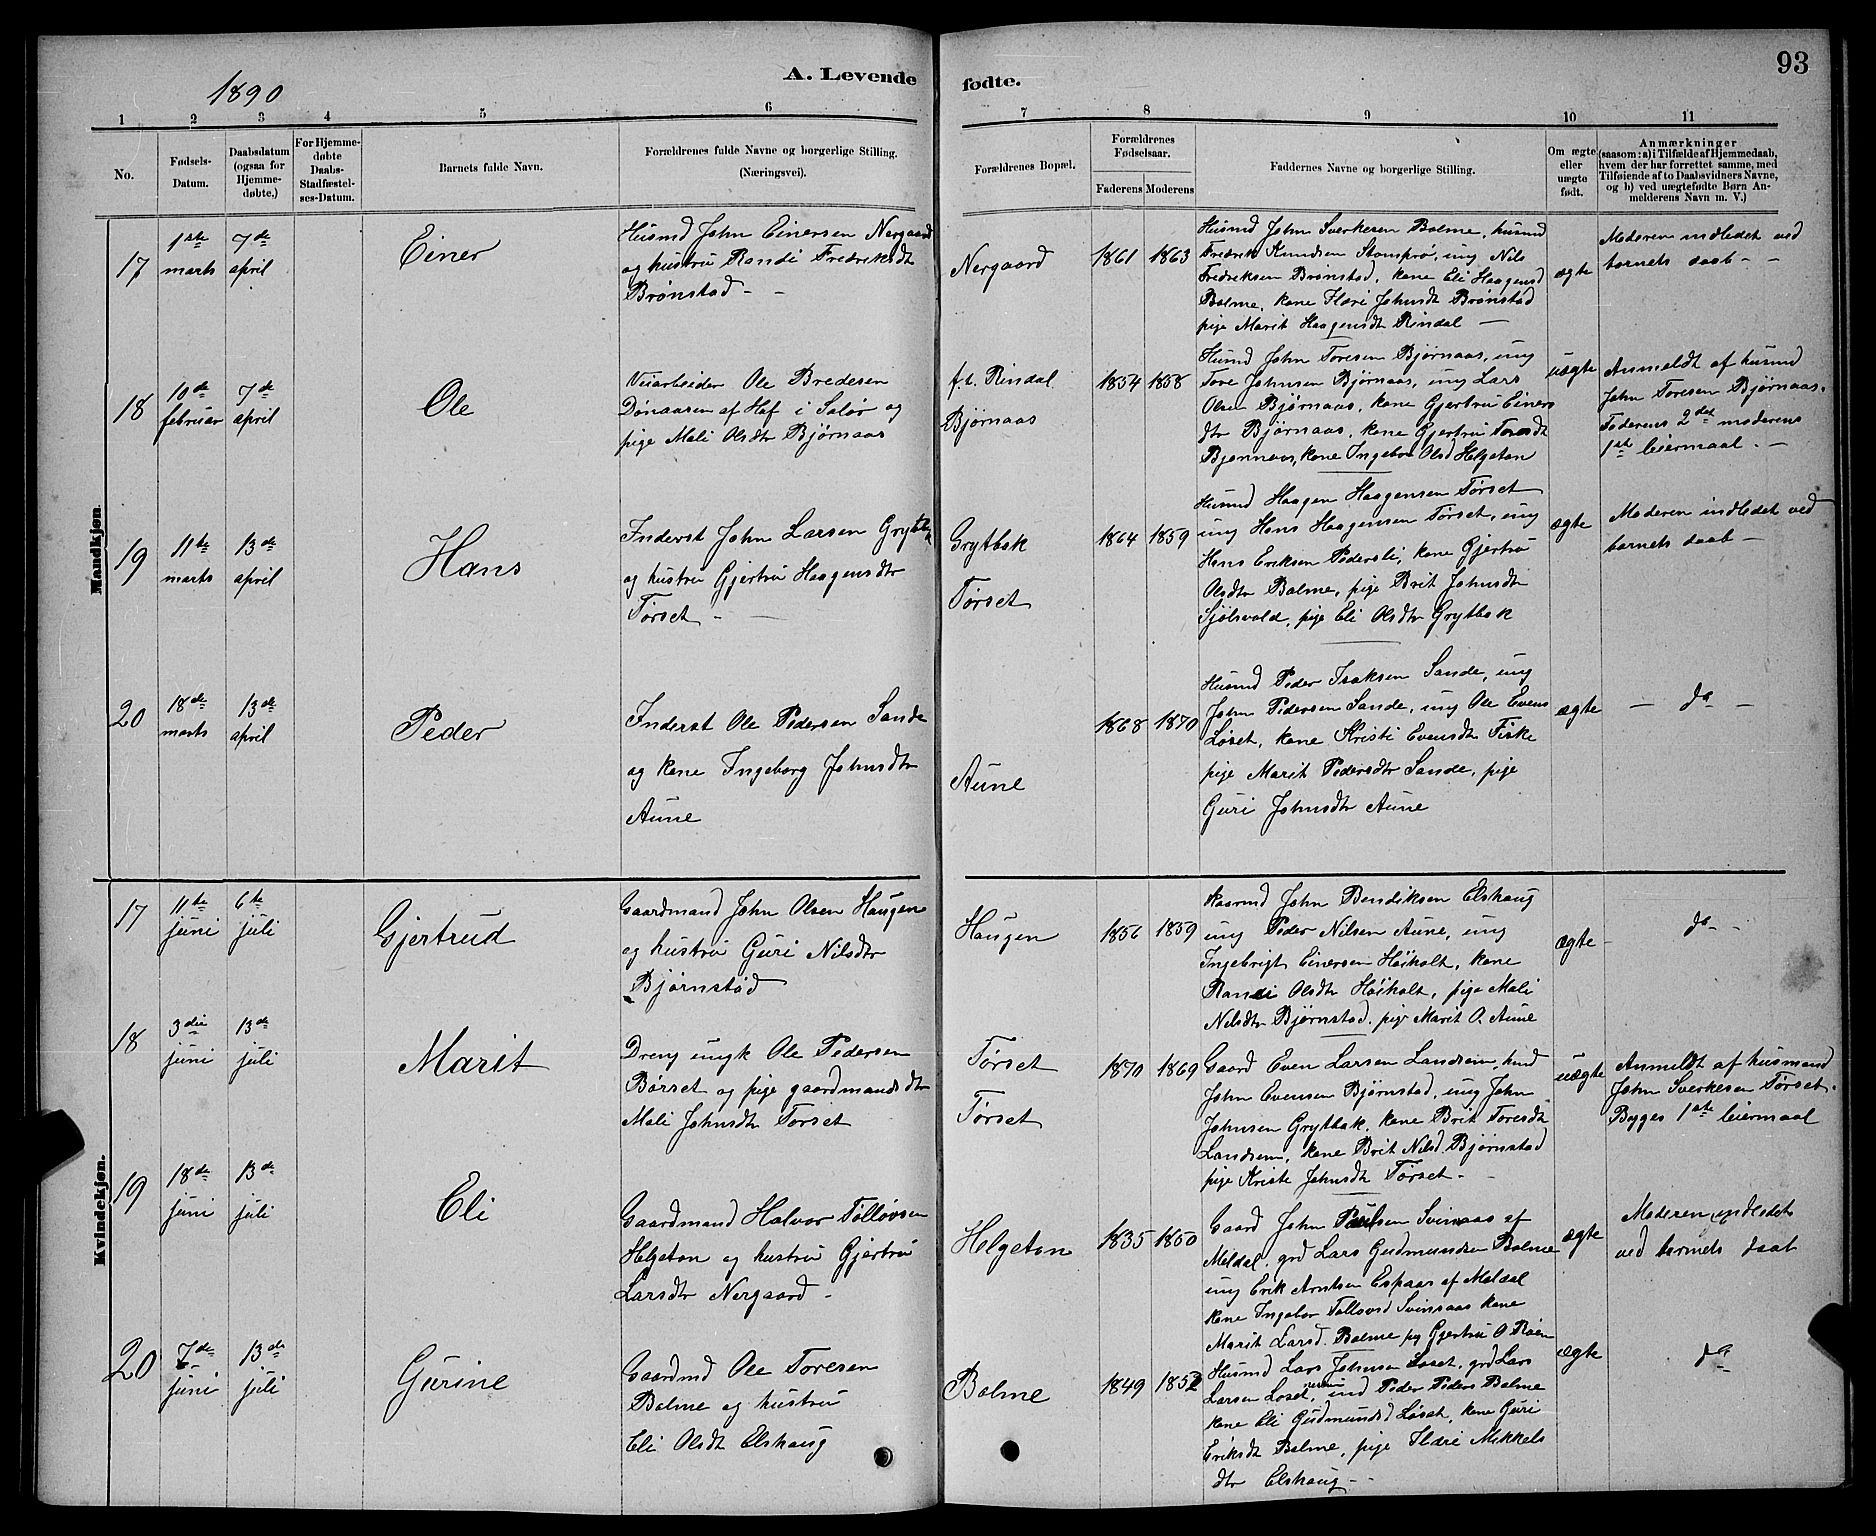 1890
A. Levende
fødte.
93
1 2 3 4 5 6 7 8 9 10 11
No.
Fødsels-
Datum.
Daabsdatum
(ogsaa for
Hjemme-
døbte.)
For Hjemme-
døbte
Daabs-
Stadfæstel-
ses-Datum.
Barnets fulde Navn.
Forældrenes fulde Navne og borgerlige Stilling.
(Næringsvei).
Forældrenes Bopæl.
Forældrenes
Fødselsaar.
Faderens Moderens
Faddernes Navne og borgerlige Stilling.
Om ægte
eller
uægte
født.
Anmærkninger
(saasom: a) i Tilfælde af Hjemmedaab,
hvem der har forrettet samme, med
Tilføiende af to Daabsvidners Navne,
og b) ved uægtefødte Børn An-
melderens Navn m. V.)
Mandkjøn.
17
1ste
marts
7de
april
Einer
Husmd John Einersen Nergaard
og hustru Randi Fredriksdt
Brønstad
Nergaard
1861 1863
Husmd John Sverkesen Bolme, husmd
Fredrik Knudsen Stomprø, ung Nils
Fredriksen Brønstad, kone Eli Haagensd
Bolme, kone Ildri Johnsdt Brønstad
pige Marit Haagensdt Rindal
ægte
Moderen indledet ved
barnets daab
18
10de
februar
7de
april
Ole
Veiarbeider Ole Bredesen
Dønaasen af Hof i Solør og
pige Mali Olsdtr Bjørnaas
f.t. Rindal
Bjørnaas
1854 1858
Husmd John Toresen Bjørnaas, ung
Tore Johnsen Bjørnaas, ung Lars
Olsen Bjørnaas, kone Gjertru Einers
dtr Bjørnaas, kone Gjertru Toresdt
Bjørnaas, kone Ingebor Olsd Helgeton
uægte
Anmeldt af husmd
John Toresen Bjørnaas.
Faderens 2det moderens
1ste leiermaal.
19
11te
marts
13de
april
Hans
Inderst John Larsen Grytbak
og hustru Gjertru Haagensdtr
Tørset
Grytbak
Tørset
1864 1859
Husmd Haagen Haagensen Tørset
ung Hans Haagensen Tørset, ung
Hans Eriksen Pedersli, kone Gjertru
Olsdtr Bolme, pige Brit Johnsdtr
Sjølsvold, pige Eli Olsdtr Grytbak
ægte
Moderen indledet ved
barnets daab
20
18de
marts
13de
april
Peder
Inderst Ole Pedersen Sande
og kone Ingeborg Johnsdtr
Aune
Aune
1868 1870
Husmd Peder Isaksen Sande, ung
John Pedersen Sande, ung Ole Evens
Løset, kone Kristi Evensdtr Fiske
pige Marit Pedersdtr Sande, pige
Guri Johnsdtr Aune
ægte
do
Kvindekjøn.
17
11te
juni
6te
juli
Gjertrud
Gaardmand John Olsen Haugen
og hustru Guri Nilsdtr
Bjørnstad
Haugen
1856 1859
Kaarmd John Bendiksen Elshaug
ung Peder Nilsen Aune, ung
Ingebrigt Einersen Høiholt, kone
Randi Olsdtr Høiholt, pige Mali
Nilsdtr Bjørnstad, pige Marit O. Aune
ægte
do
18
3die
juni
13de
juli
Marit
Dreng ungk Ole Pedersen
Børset og pige gaardmandsdtr
Mali Johnsdtr Tørset
Tørset
Tørset
1870 1869
Gaard Even Larsen Landsem, ind
John Evensen Bjørnstad, ung John
Johnsen Grytbak, kone Brit Toresdt
Landsem, kone Brit Nilsd. Bjørnstad
pige Kristi Johnsdt Tørset
uægte
Anmeldt af husmand
John Sverkesen Tørset.
Begges 1ste leiermaal
19
18de
juni
13de
juli
Eli
Gaardmand Halvor Tølløvsen
Helgeton og hustru Gjertru
Larsdtr Nergaard
Helgeton
1835 1850
Gaard John Paulsen Svinsaas af
Meldal, grd Lars Gudmundsen Bolme
ung Erik Arntsen Espaas af Meldal
kone Ingebor Tollovsd Svinsaas kone
Marit Larsd. Bolme pg Gjertru O Røen
ægte
Moderen indledet
ved barnets daab
20
7de
juni
13de
juli
Gurine
Gaardmd Ole Toresen
Bolme og hustru
Eli Olsdt Elshaug
Bolme
1849 1852
Husmd Lars Johnsen Løset, grd Lars
Larsen Løset, ind Peder Peders Bolme
kone Eli Gudmundsd Løset, kone Guri
Eriksdt Bolme, pige Ildri Mikkels
dtr Elshaug
ægte
do